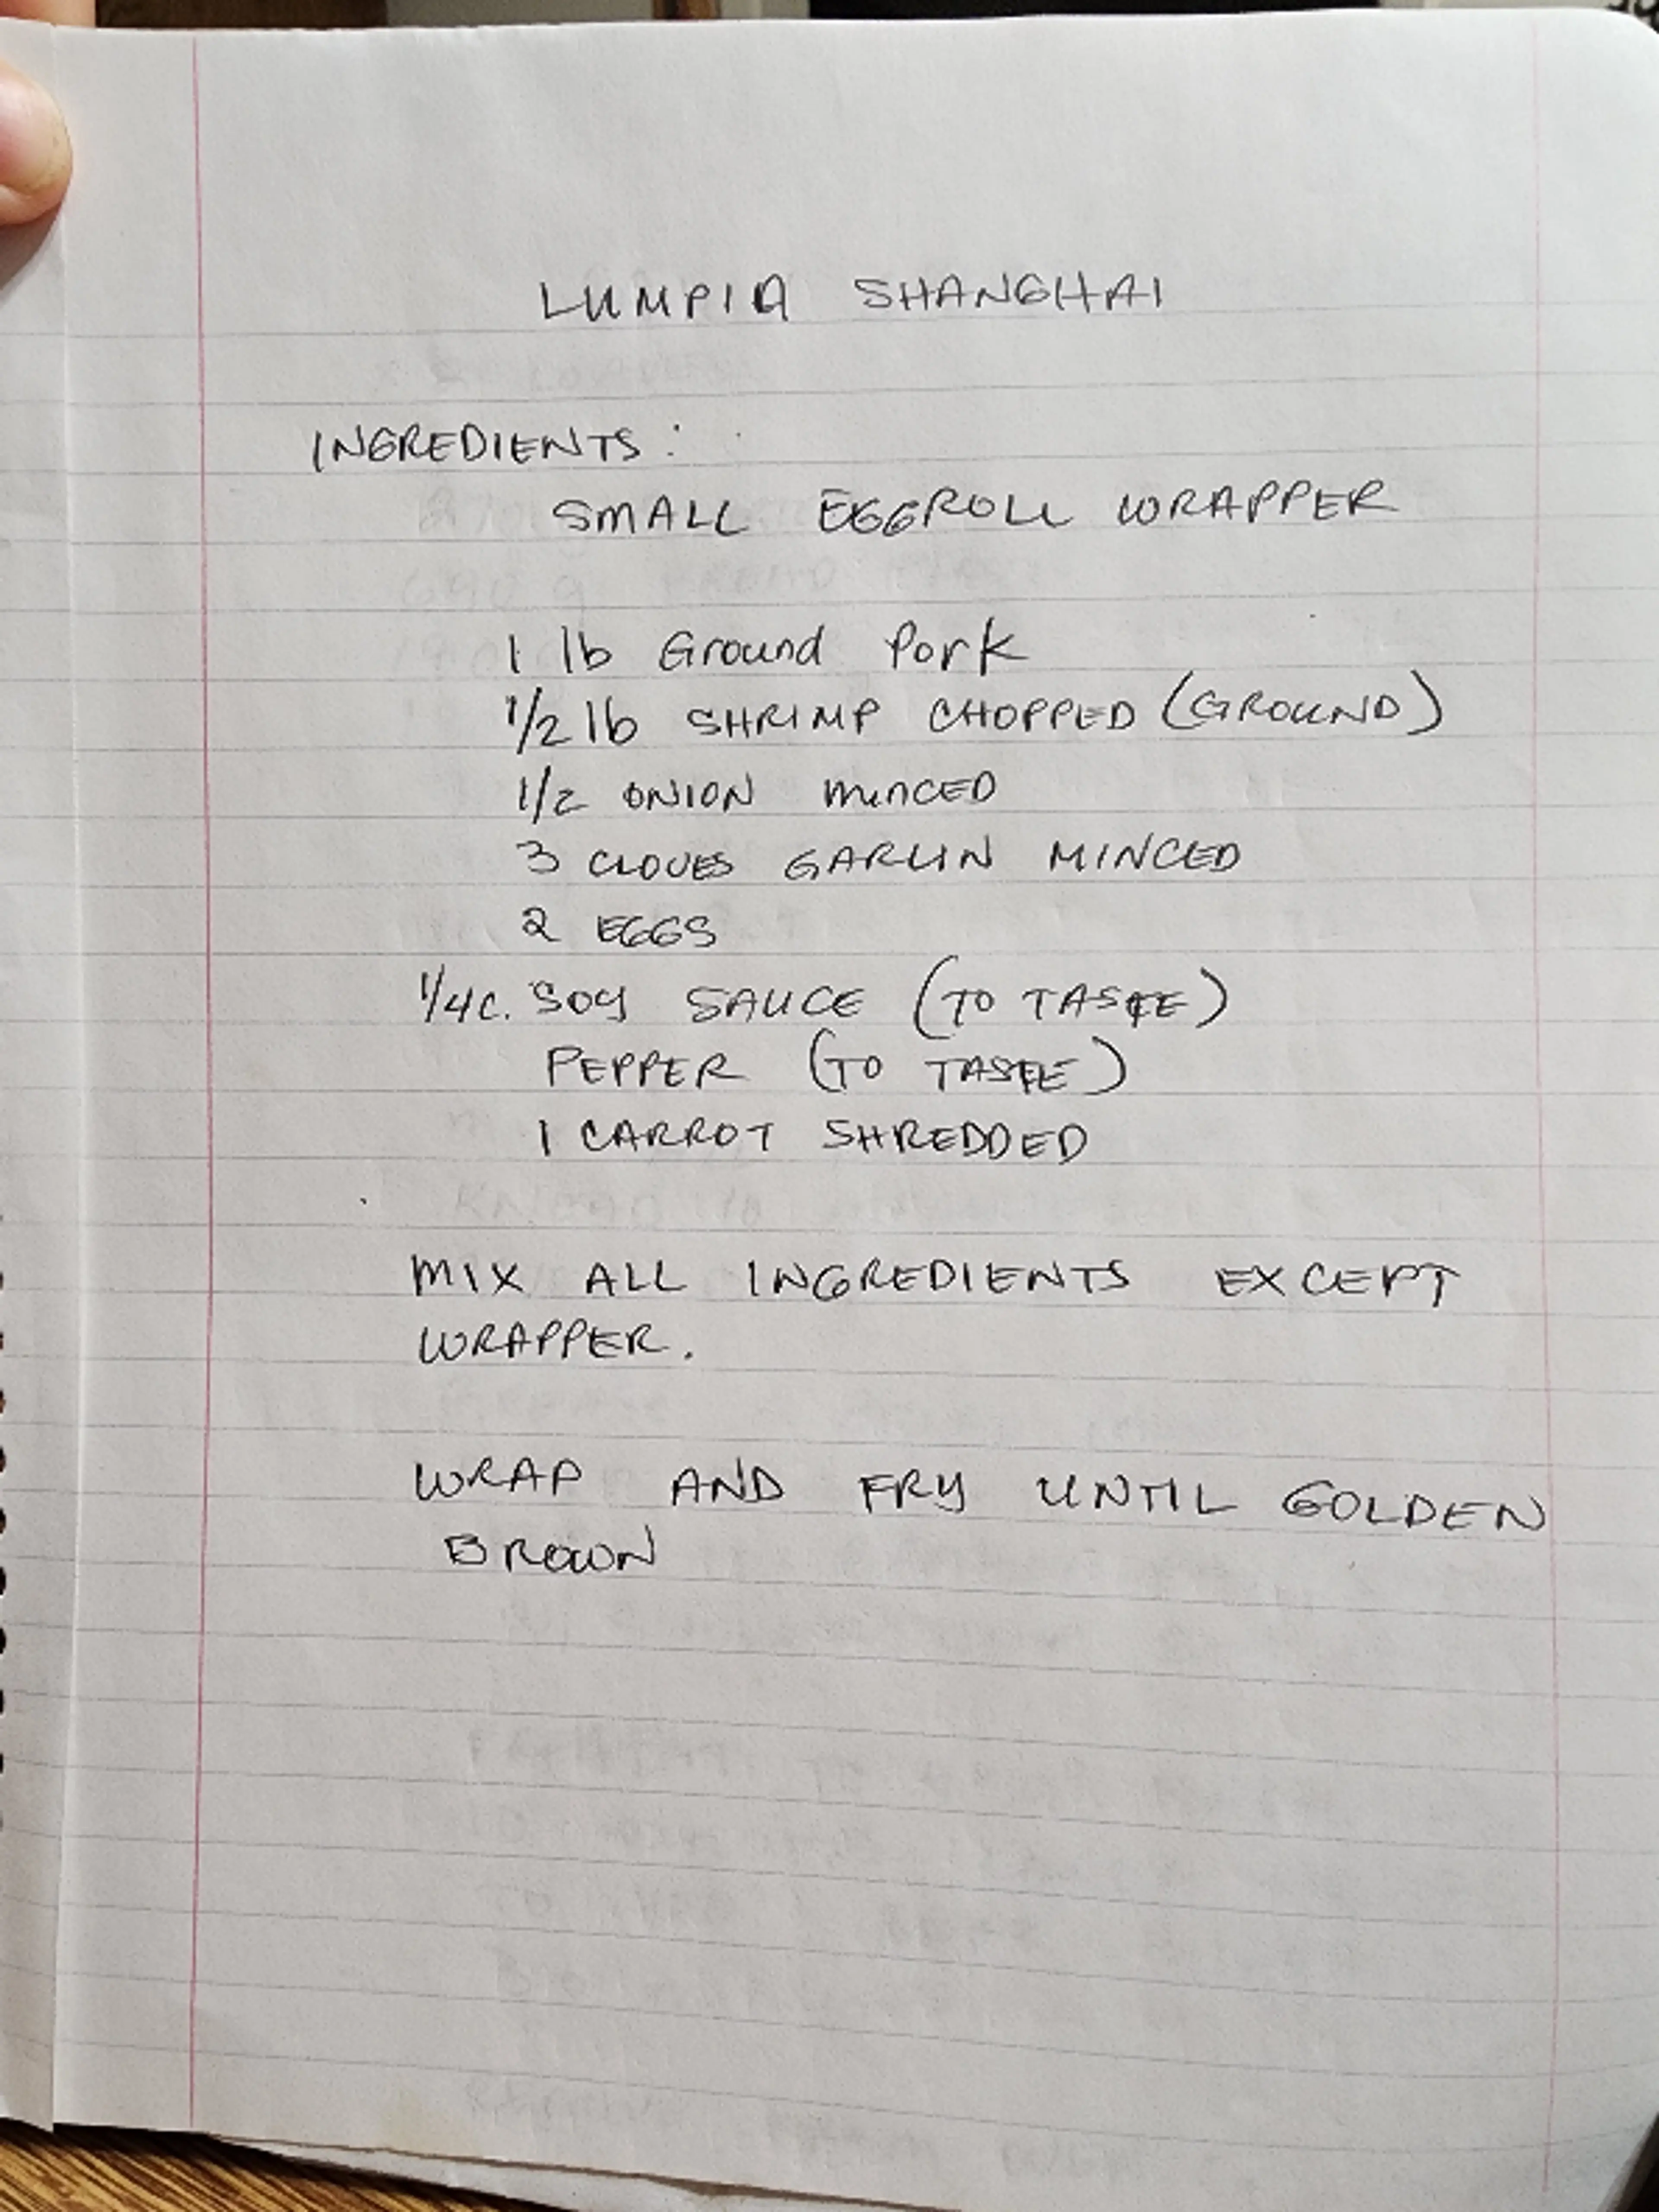 LUMPIA SHANGHAI
INGREDIENTS:
SMALL EGGROLL WRAPPER
1 lb Ground Pork
1/2 lb SHRIMP CHOPPED (GROUND)
1/2 ONION MINCED
3 CLOVES GARLIN MINCED
2 EGGS
1/4 C. SOY SAUCE (TO TASTE)
PEPPER (TO TASTE)
1 CARROT SHREDDED
MIX ALL INGREDIENTS EXCEPT
WRAPPER.
WRAP AND FRY UNTIL GOLDEN
BROWN